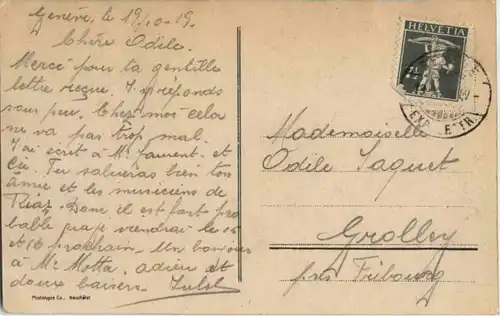 Genève, le 19/10-19.
Chère Odile.
Merci pour ta gentille
lettre reçue. J'y réponds
sous peu. Chez moi cela
ne va par trop mal.
J'ai écrit à Mr Laurent. et
Cie. Tu salueras bien ton
amie et les musiciens de
Riaz. Donc il est fort pro
bable que je viendrai le 15
et 16 prochain. Un bonjour
à Mr Motta. adieu et
doux baisers.
Phototypie Co., Neuchâtel
HELVETIA
Mademoiselle
Odile Jaquet
Grolley
près Fribourg